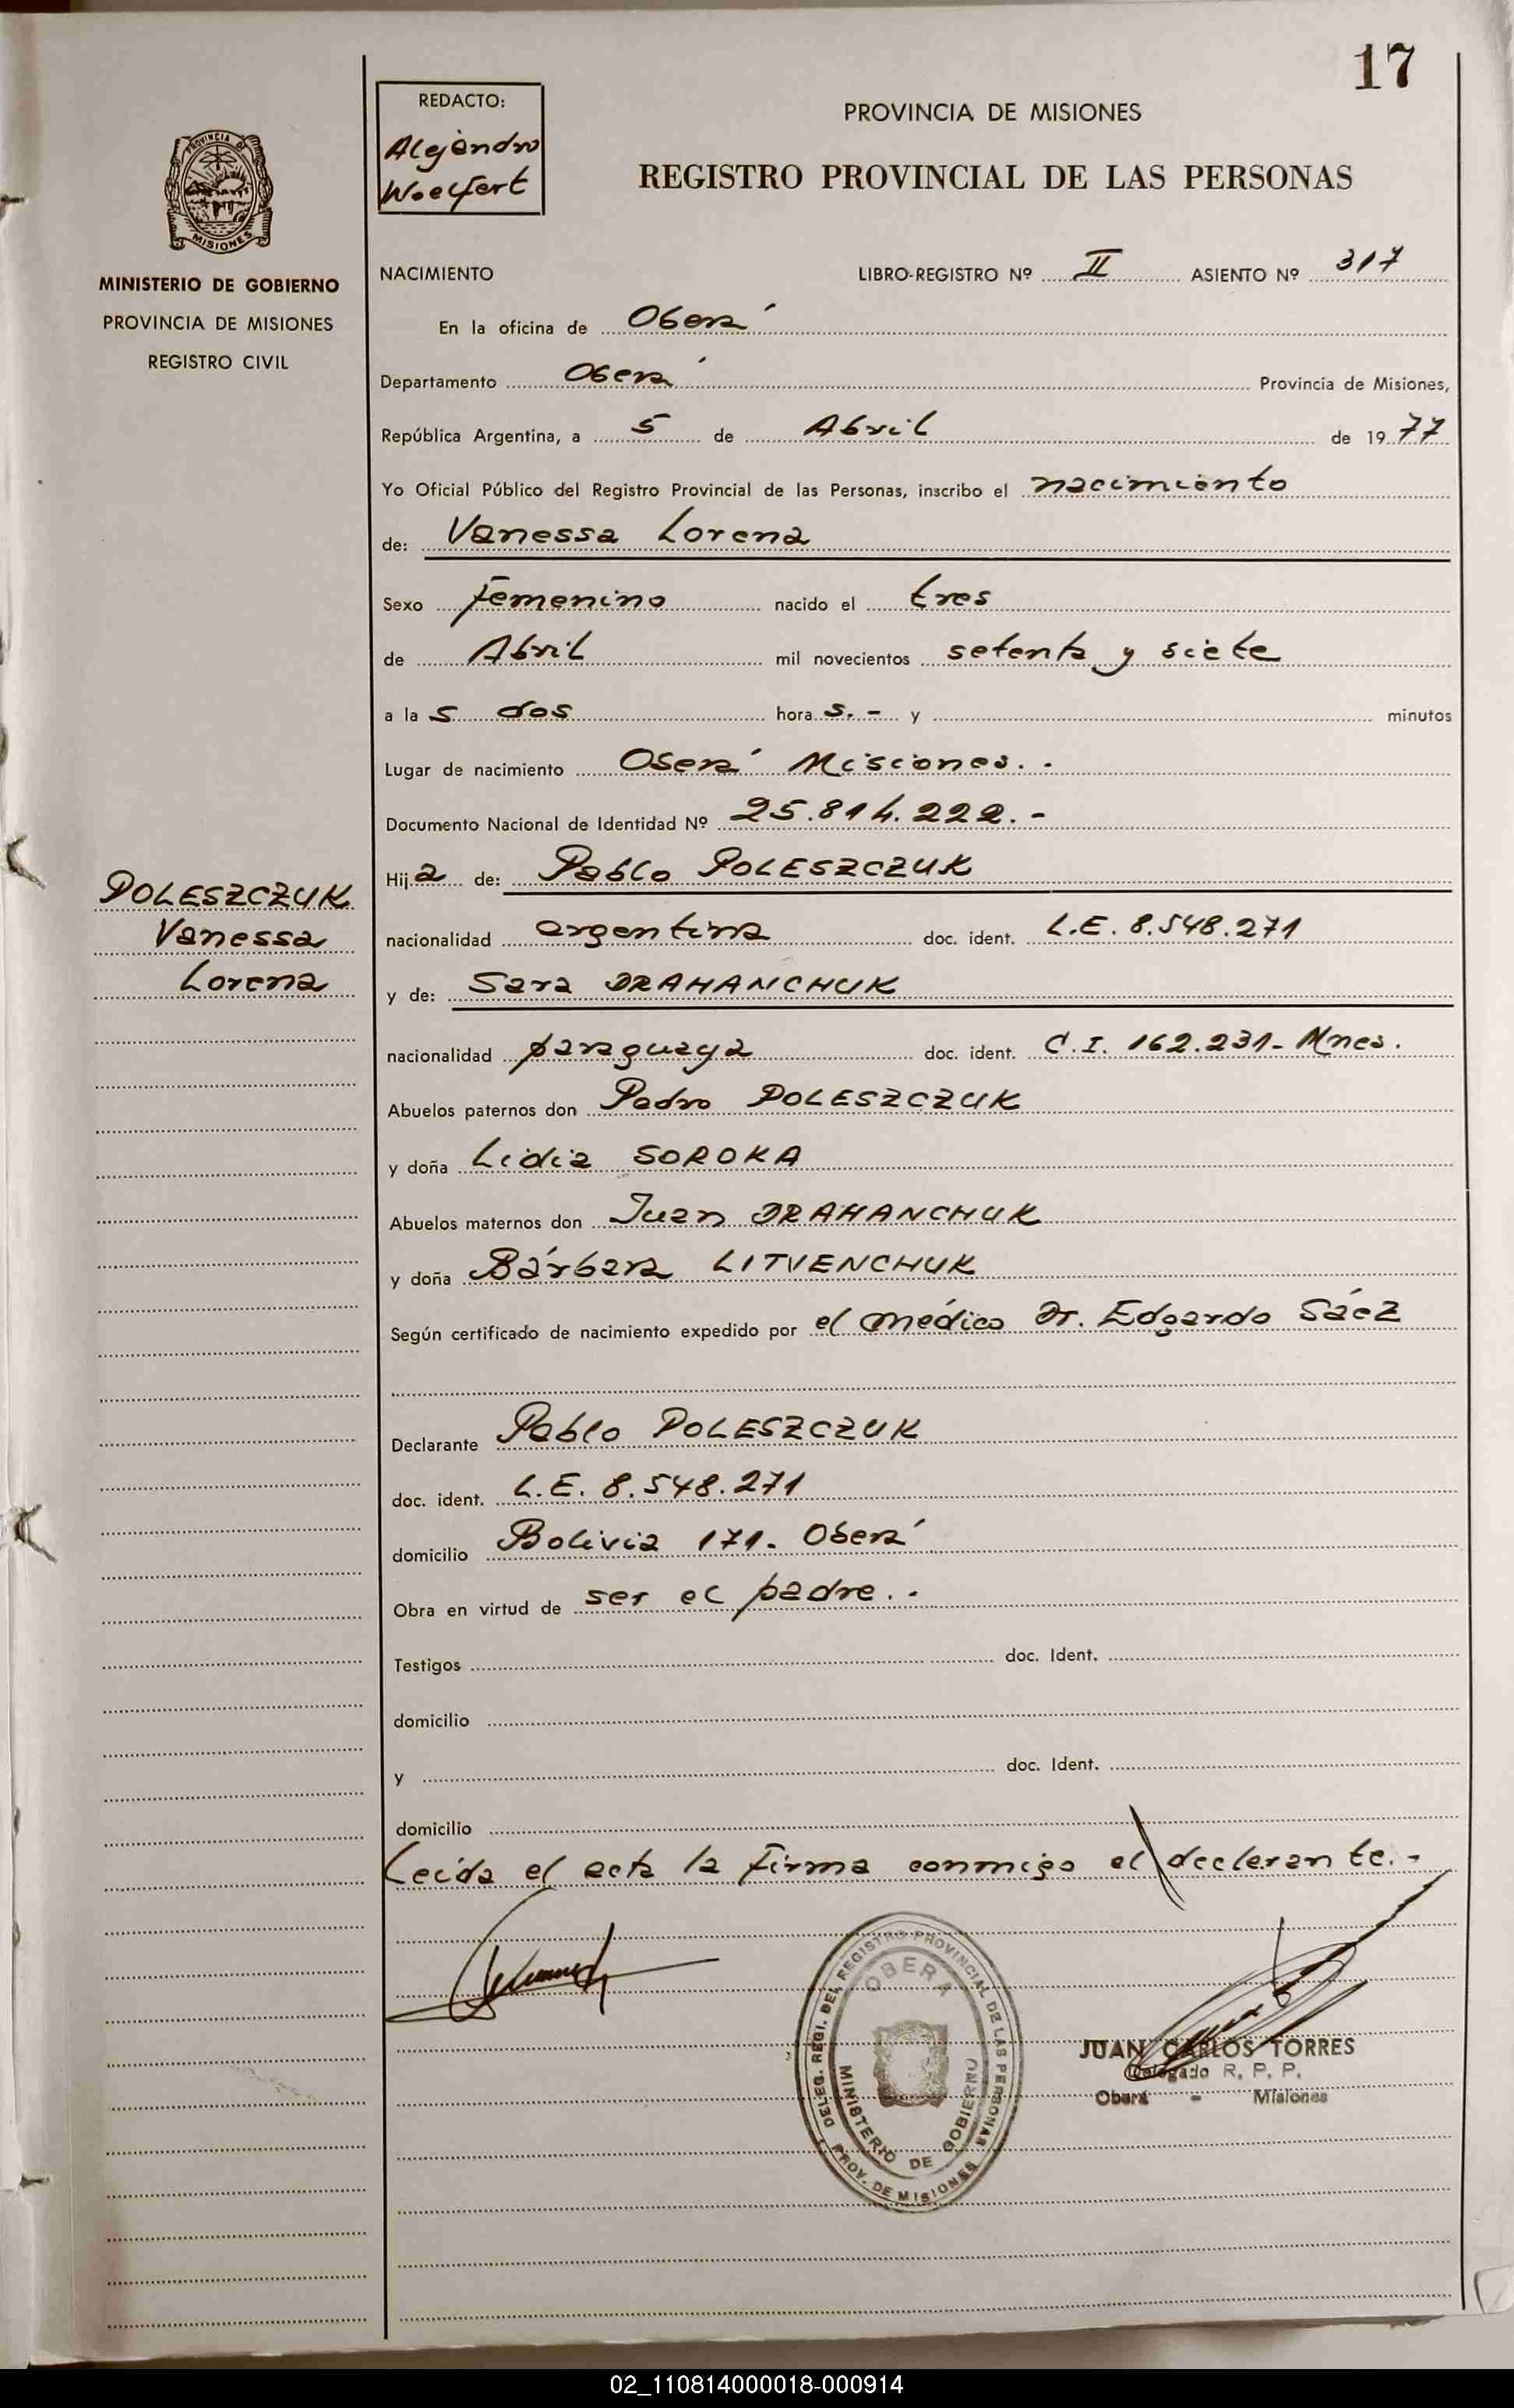 17
REDACTO:
Alejandro
Woelfert
PROVINCIA DE MISIONES
REGISTRO PROVINCIAL DE LAS PERSONAS
PROVINCIA DE
MISIONES
MINISTERIO DE GOBIERNO
PROVINCIA DE MISIONES
REGISTRO CIVIL
NACIMIENTO LIBRO-REGISTRO Nº II ASIENTO Nº 317
En la oficina de Oberá
Departamento Oberá Provincia de Misiones,
República Argentina, a 5 de Abril de 1977
Yo Oficial Público del Registro Provincial de las Personas, inscribo el nacimiento
de: Vanessa Lorena
Sexo femenino nacido el tres
de Abril mil novecientos setenta y siete
a la s dos hora s.- y minutos
Lugar de nacimiento Oberá Misiones.-
Documento Nacional de Identidad Nº 25.814.222.-
Hija de: Pablo POLESZCZUK
POLESZCZUK
Vanessa
Lorena
nacionalidad argentina doc. ident. L.E. 8.548.271
y de: Sara DRAHANCHUK
nacionalidad paraguaya doc. ident. C.I. 162.231- Mnes.
Abuelos paternos don Pedro POLESZCZUK
y doña Lidia SOROKA
Abuelos maternos don Juan DRAHANCHUK
y doña Bárbara LITVENCHUK
Según certificado de nacimiento expedido por el médico Dr. Edgardo Sáez
Declarante Pablo POLESZCZUK
doc. ident. L.E. 8.548.271
domicilio Bolivia 171. Oberá
Obra en virtud de ser el padre.-
Testigos doc. Ident.
domicilio
y doc. Ident.
domicilio
Leída el acta la firma conmigo el declarante.-
DELEG. REGI. DEL REGISTRO PROVINCIAL DE LAS PERSONAS
OBERA
MINISTERIO DE GOBIERNO
PROV. DE MISIONES
JUAN CARLOS TORRES
Delegado R. P. P.
Oberá - Misiones
02_110814000018-000914